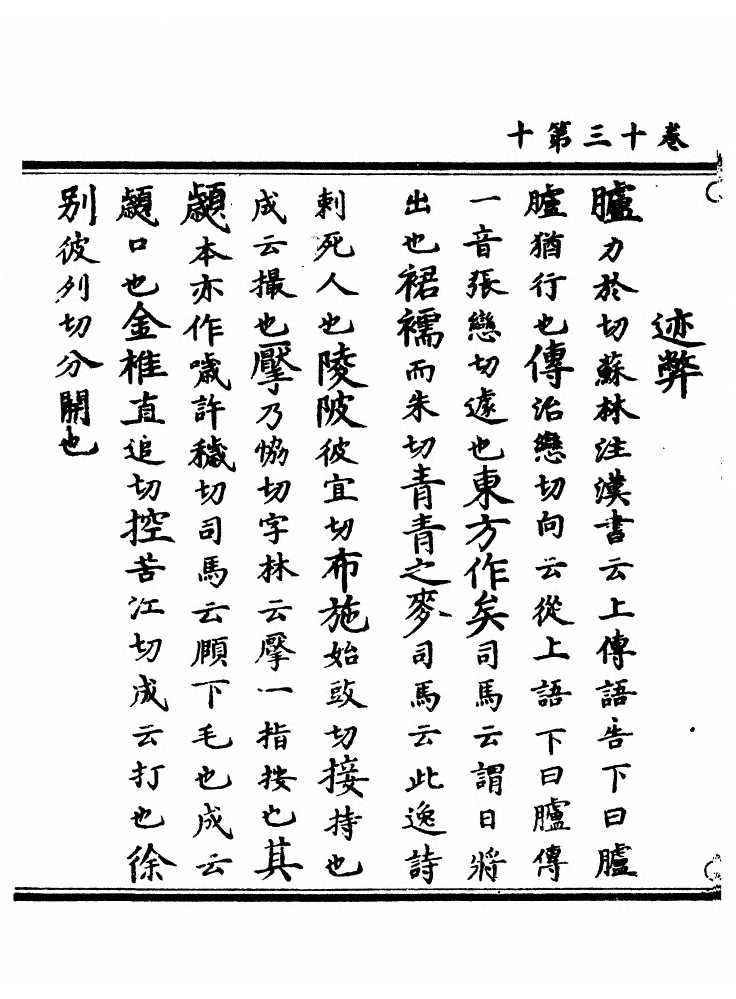 卷十三第十
迹弊
臚力於切蘇林注漢書云上傳語告下曰臚
臚猶行也傳治戀切向云從上語下曰臚傳
一音張戀切遽也東方作矣司馬云謂日將
出也裙襦而朱切青青之麥司馬云此逸詩
刺死人也陵陂彼宜切布施始豉切接持也
成云撮也擪乃協切字林云擪一指按也其
顪本亦作噦許穢切司馬云頤下毛也成云
顪口也金椎直追切控苦江切成云打也徐
別彼列切分開也